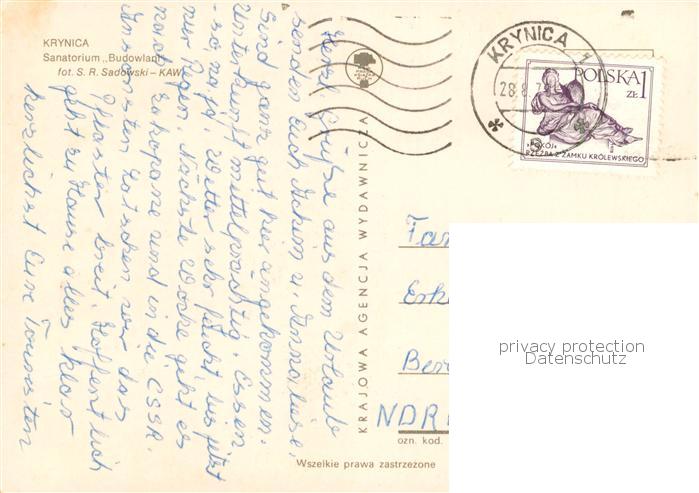 KRYNICA
Sanatorium „Budowlani"
fot. S. R. Sadowski – KAW
Herzl. Grüße aus dem Urlaub
senden Euch Achim u. Annaliese.
Sind ganz gut hier angekommen.
Unterkunft mittelprächtig. Essen
- so, na ja. Wetter sehr feucht bis jetzt
nur Regen. Nächste Woche geht es
nach Zakopane und in die CSSR.
Ansonsten latschen wir das
Pflaster breit. Hoffentlich
geht zu Hause alles klar
herzlichst Eure Touristen
KRAJOWA AGENCJA WYDAWNICZA
KRYNICA
28.8.7
POLSKA 1
ZŁ
»POKÓJ«
RZEŹBA Z ZAMKU KRÓLEWSKIEGO
Fam
Erk
Ber
NDR
ozn. kod.
Wszelkie prawa zastrzeżone
privacy protection
Datenschutz